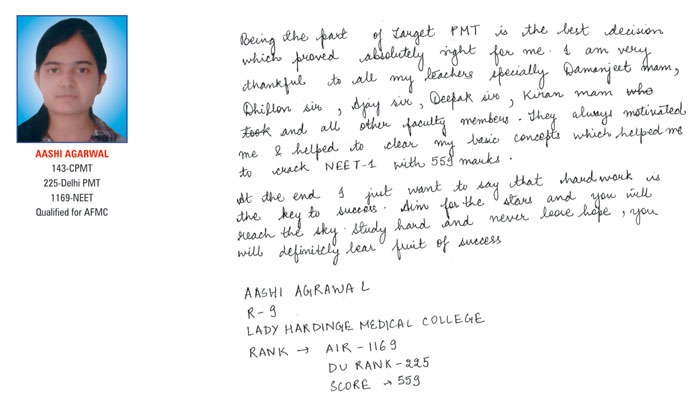 AASHI AGARWAL
143-CPMT
225-Delhi PMT
1169-NEET
Qualified for AFMC
Being the part of Target PMT is the best decision
which proved absolutely right for me. I am very
thankful to all my teachers specially Damanjeet mam,
Dhillon sir, Ajay sir, Deepak sir, Kiran mam who
took and all other faculty members. They always motivated
me & helped to clear my basic concepts which helped me
to crack NEET-1 with 559 marks.
At the end I just want to say that hardwork is
the key to success. Aim for the stars and you will
reach the sky. Study hard and never lose hope, you
will definitely bear fruit of success
AASHI AGRAWAL
R-9
LADY HARDINGE MEDICAL COLLEGE
RANK → AIR-1169
DU RANK-225
SCORE → 559